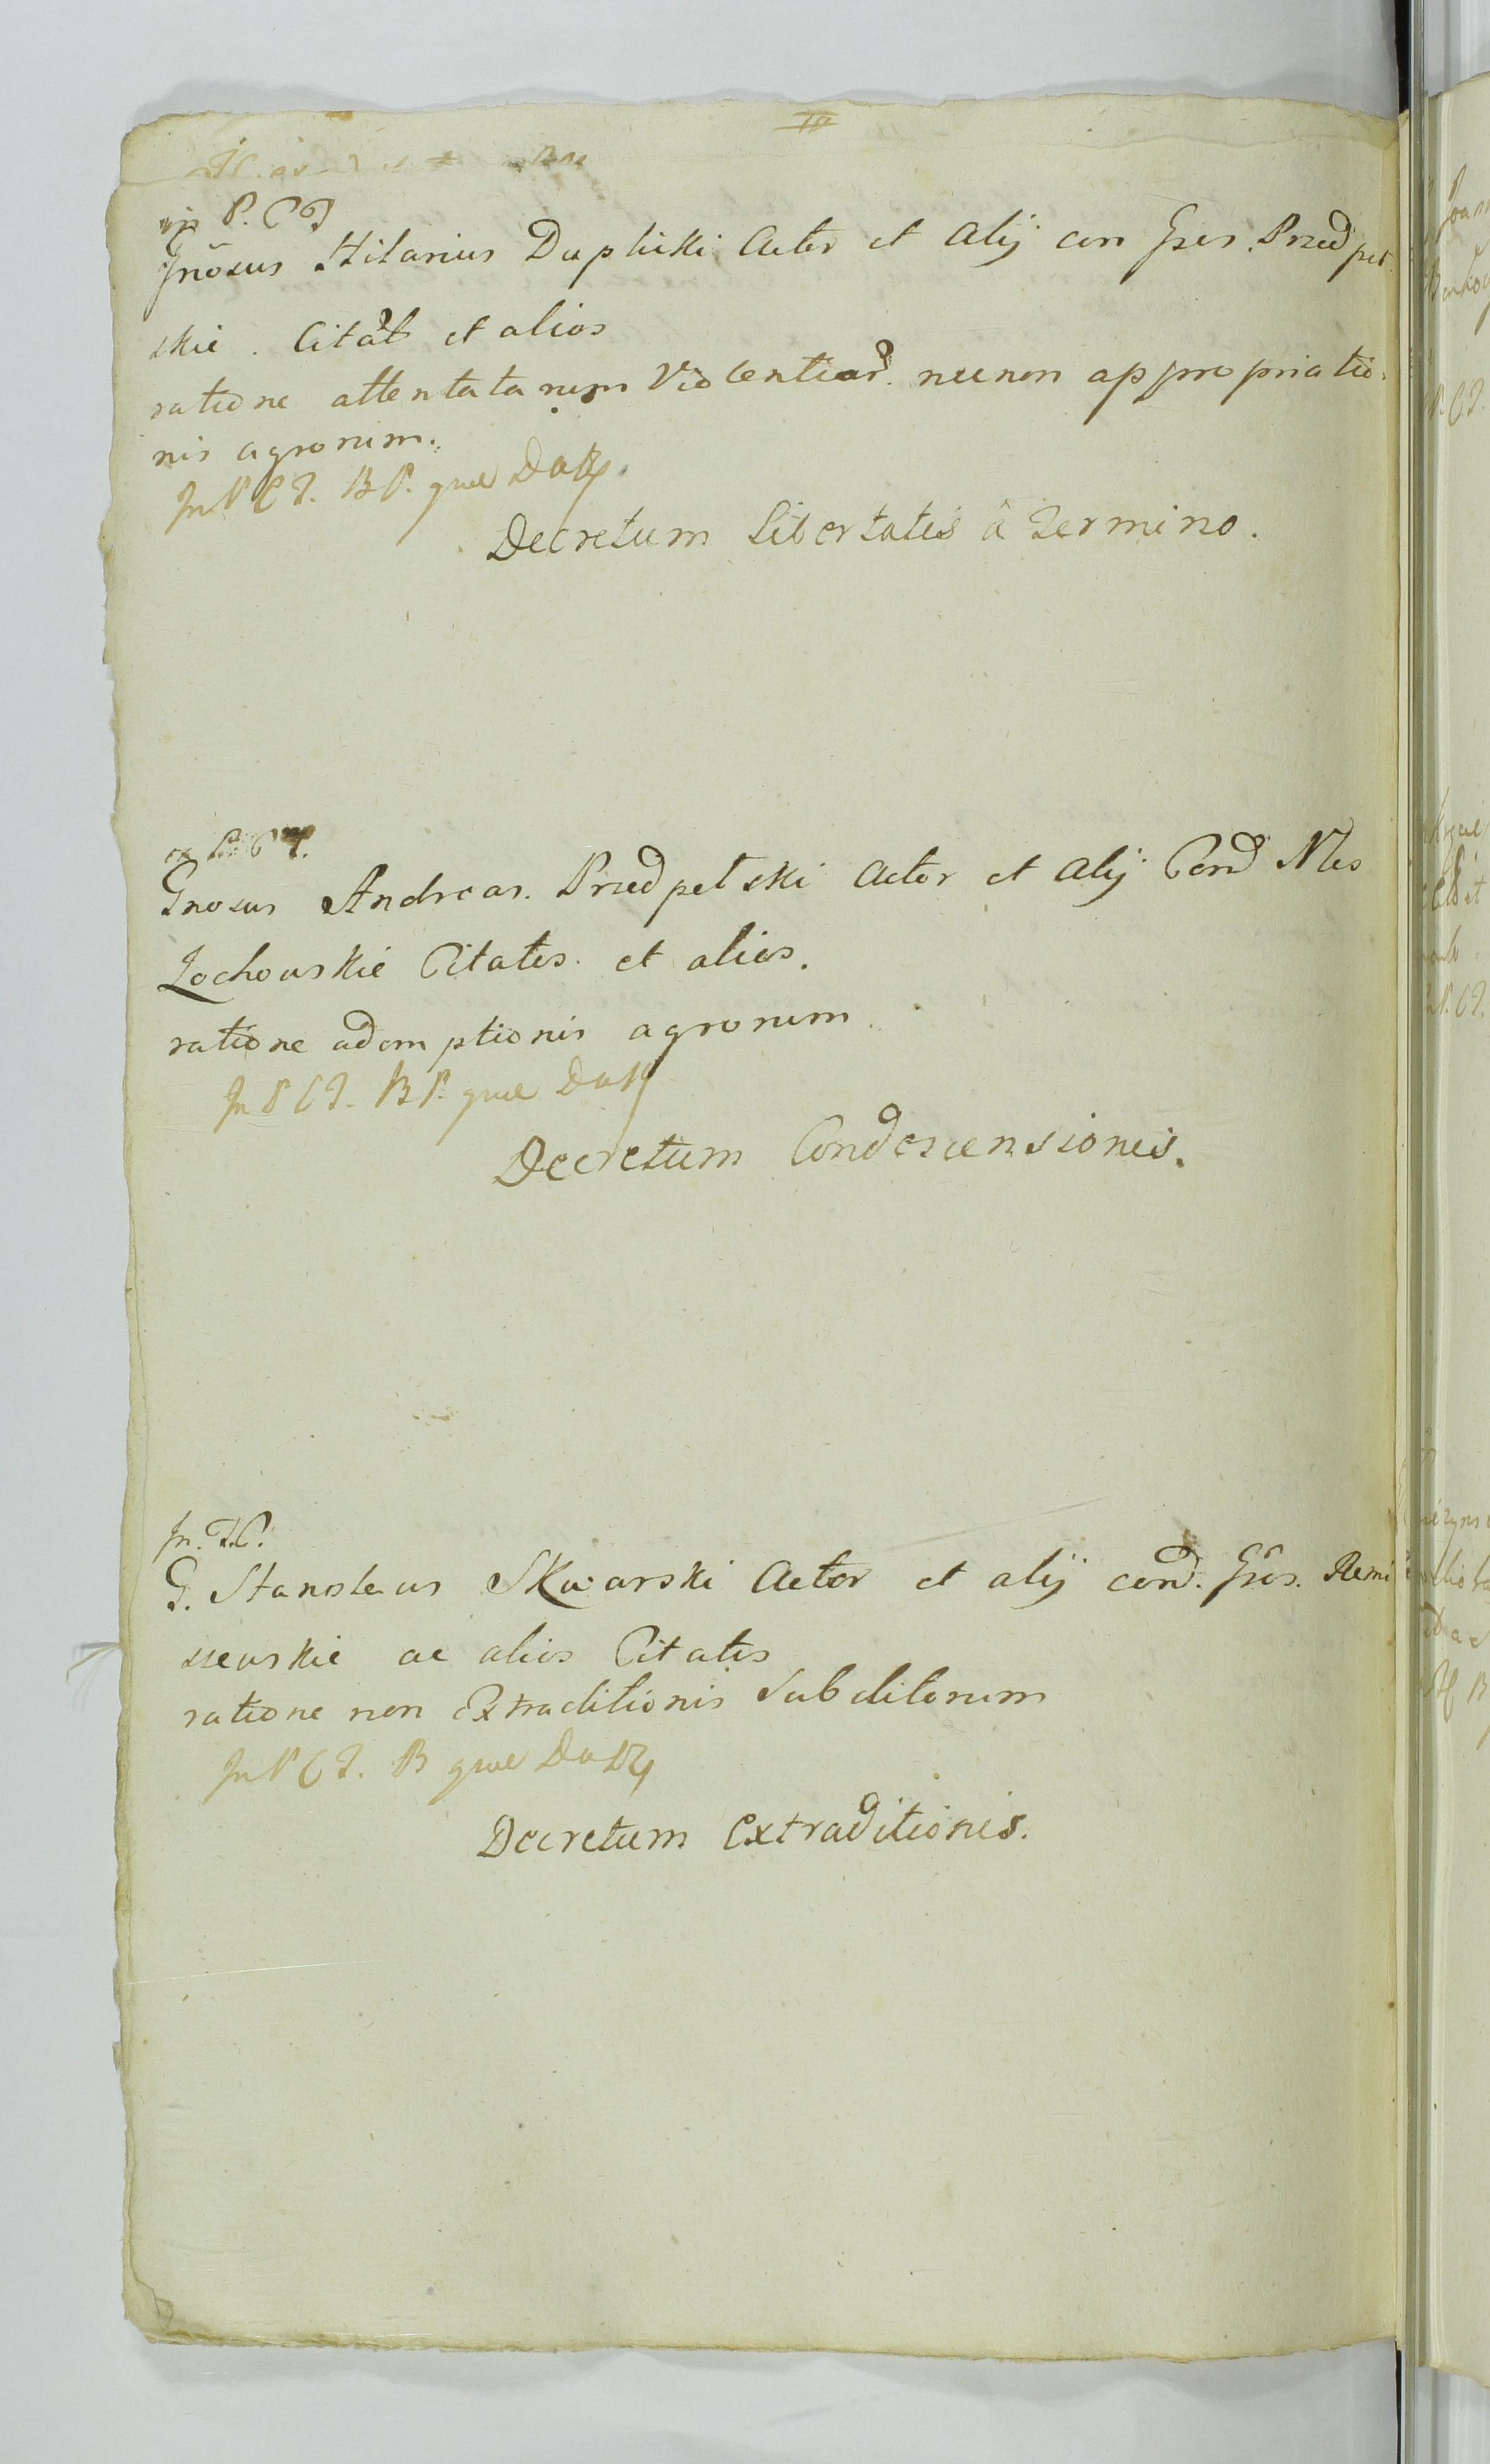 in P. C T
Gnōsus Hilarius Duplicki Actor et alij con Gsos. Przedpet
skie. Citāt et alios
ratione attentatarum Violentiar. necnon appropriatio
nis agrorum.
In P C T. B P. que
Decretum Libertatis â Termino.
Gnosus Andreas. Przedpelski Actor et alij Cond Nles
Zochowskie Citatos. et alios.
ratione ademptionis agrorum
In P C T. B P. que
Decretum Condescensionis.
In. T.C.
G. Stanislaus Skwarski Actor et alij cond. Gsos. Remi
szewskie ac alios Citatos
ratione non Extraditionis Subditorum
In P C T. B que
Decretum Extraditionis.